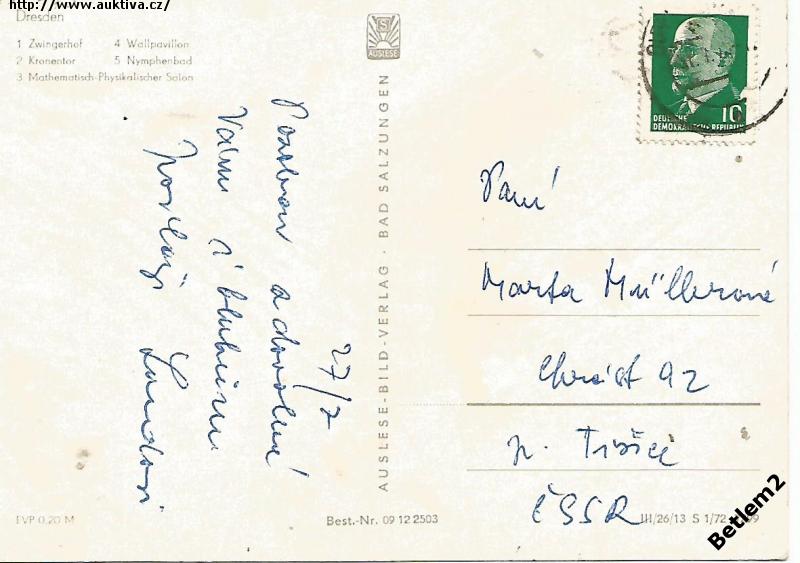 http://www.auktiva.cz/
Dresden
1 Zwingerhof 4 Wallpavillon
2 Kronentor 5 Nymphenbad
3 Mathematisch-Physikalischer Salon
S
AUSLESE
10
DEUTSCHE
DEMOKRATISCHE REPUBLIK
27/7
Pozdrav z dovolené
Vám i
posílají
AUSLESE-BILD-VERLAG · BAD SALZUNGEN
Paní
Marta Müllerová
Chrást 92
p. Tišice
ČSSR
EVP 0,20 M
Best.-Nr. 09 12 2503
III/26/13 S 1/72
Betlem2